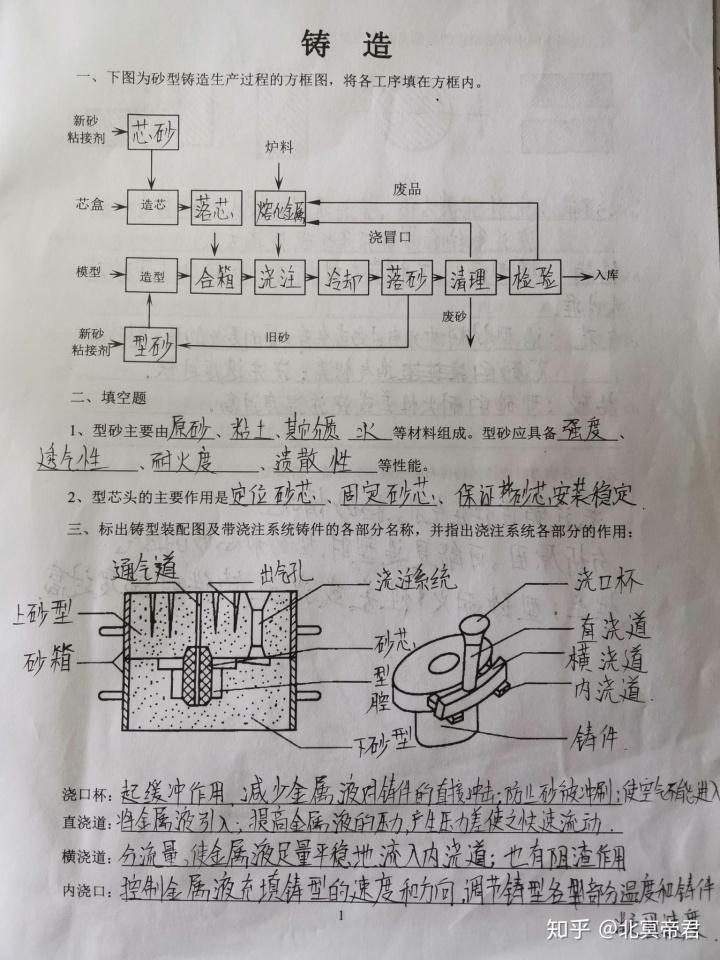 铸 造
一、下图为砂型铸造生产过程的方框图，将各工序填在方框内。
新砂
粘接剂
芯砂
炉料
废品
芯盒
造芯
落芯
熔化金属
浇冒口
模型
造型
合箱
浇注
冷却
落砂
清理
检验
入库
废砂
新砂
粘接剂
型砂
旧砂
二、填空题
1、型砂主要由原砂、粘土、其它物质 水 等材料组成。型砂应具备 强度 、
透气性 、耐火度 、溃散性 等性能。
2、型芯头的主要作用是定位砂芯、固定砂芯、保证砂芯安装稳定.
三、标出铸型装配图及带浇注系统铸件的各部分名称，并指出浇注系统各部分的作用：
通气道 出气孔 浇注系统 浇口杯
上砂型 直浇道
砂箱 砂芯 横浇道
型腔 内浇道
下砂型 铸件.
浇口杯：起缓冲作用，减少金属液对铸件的直接冲击；防止砂被冲刷；使空气不能进入
直浇道：将金属液引入；提高金属液的压力，产生压力差使之快速流动.
横浇道：分流量，使金属液足量平稳地流入内浇道；也有阻渣作用
内浇口：控制金属液充填铸型的速度和方向，调节铸型各部分温度和铸件
凝固速度.
1
知乎 @北冥帝君